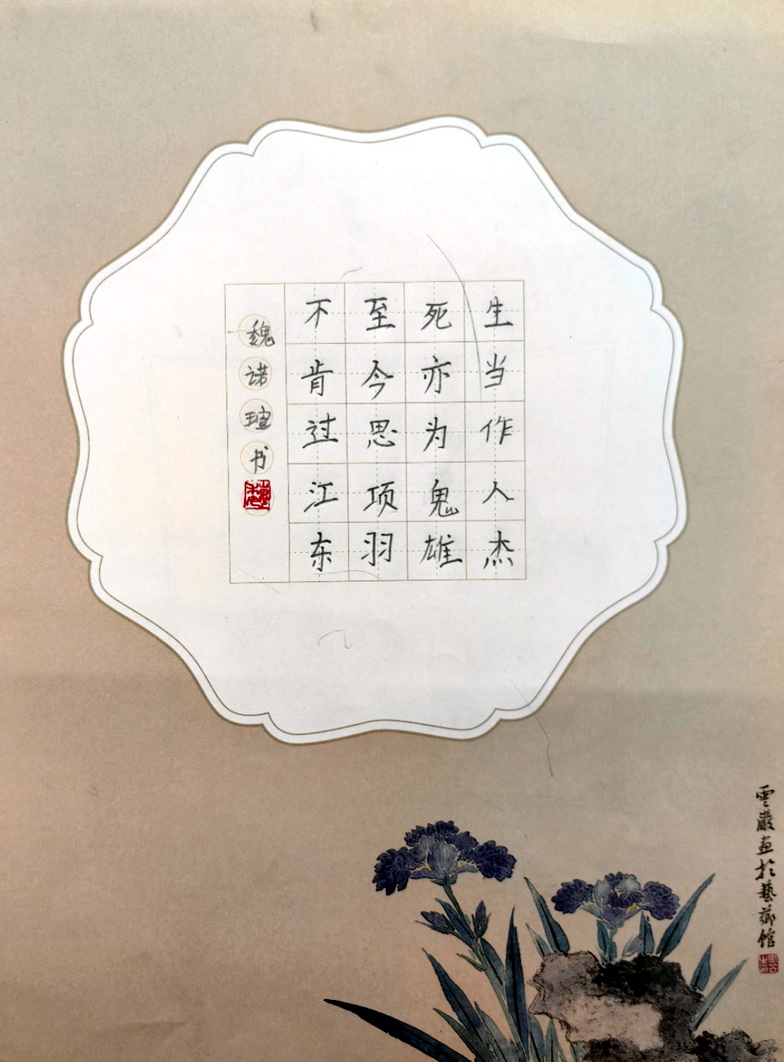 生当作人杰
死亦为鬼雄
至今思项羽
不肯过江东
魏诺瑄书
雲巖画於藝薌馆